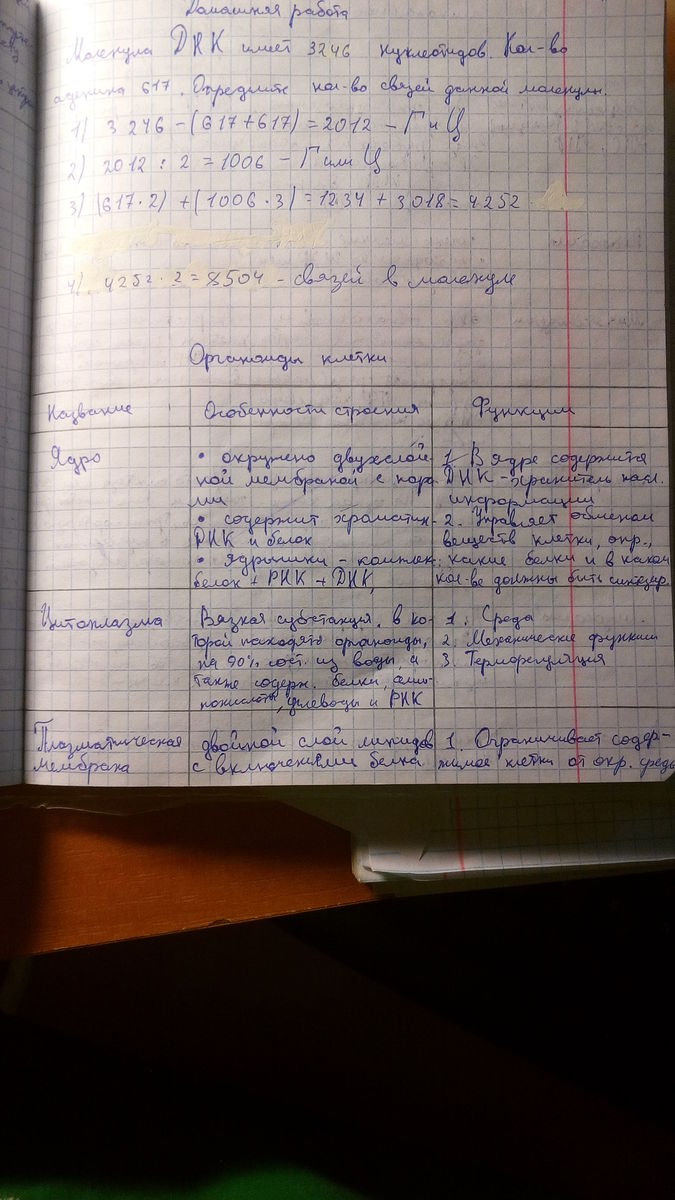 Домашняя работа
Молекула ДНК имеет 3246 нуклеотидов. Кол-во
аденина 617. Определите кол-во связей данной молекулы.
1) 3246 - (617+617) = 2012 - Г и Ц
2) 2012 : 2 = 1006 - Г или Ц
3) (617·2) + (1006·3) = 1234 + 3018 = 4252
4) 4252·2 = 8504 - связей в молекуле
Органоиды клетки
Название
Особенности строения
Функции
Ядро
• окружено двухслой-
ной мембраной с пора
ми
• содержит хроматин-
ДНК и белок
• ядрышки - комплек:
белок + РНК + ДНК,
1. В ядре содержится
ДНК - хранитель насл.
информации
2. Управляет обменом
веществ клетки, опр.,
какие белки и в каком
кол-ве должны быть синтезир.
Цитоплазма
Вязкая субстанция, в ко-
торой находятя органоиды,
на 90% сост. из воды, а
также содерж. белки, ами-
нокислоты, углеводы и РНК
1. Среда
2. Механические функции
3. Терморегуляция
Плазматическая
мембрана
двойной слой липидов
с включениями белка
1. Ограничивает содер-
жимое клетки от окр. среды